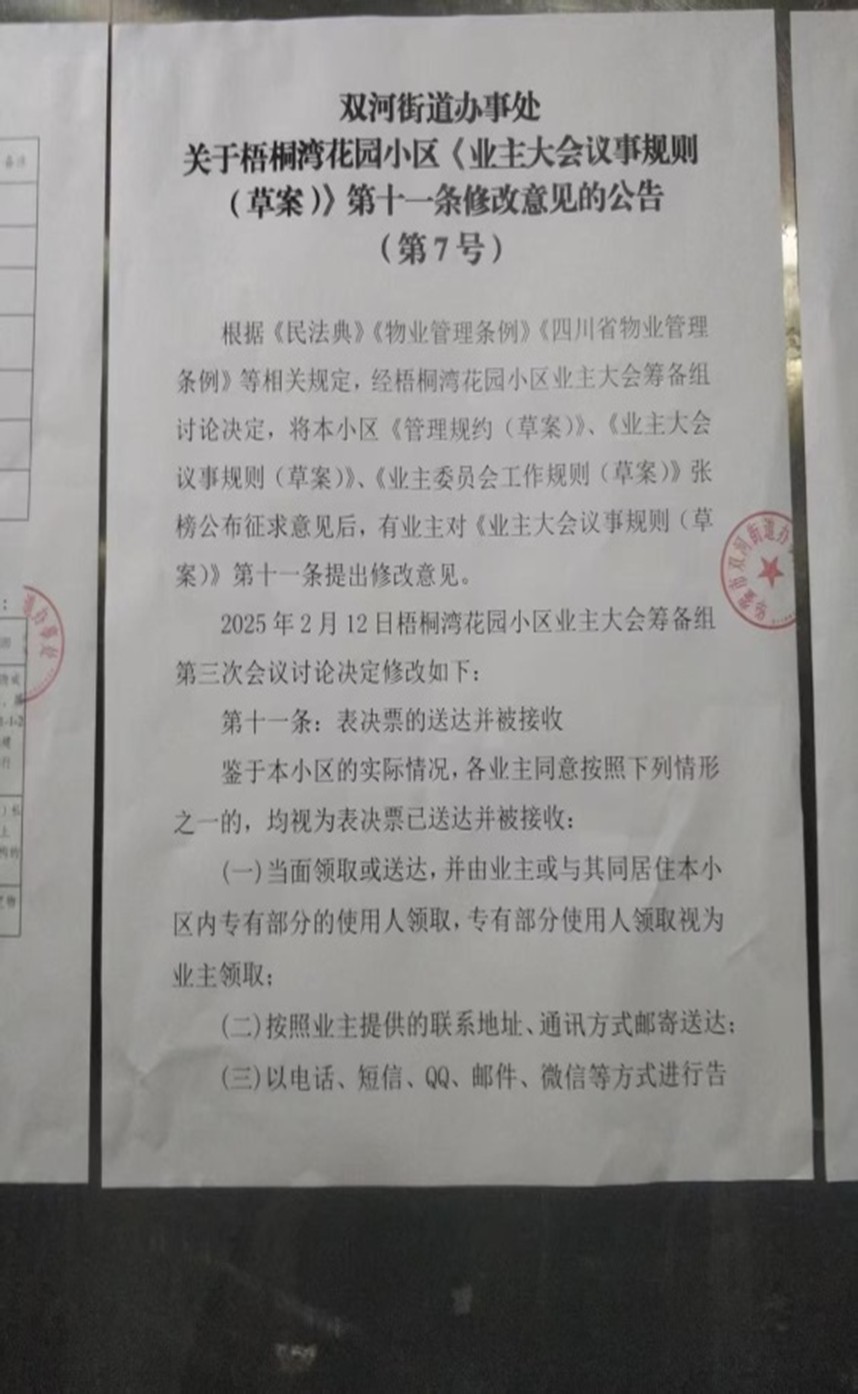 双河街道办事处
关于梧桐湾花园小区《业主大会议事规则
（草案）》第十一条修改意见的公告
（第7号）
根据《民法典》《物业管理条例》《四川省物业管理
条例》等相关规定，经梧桐湾花园小区业主大会筹备组
讨论决定，将本小区《管理规约（草案）》、《业主大会
议事规则（草案）》、《业主委员会工作规则（草案）》张
榜公布征求意见后，有业主对《业主大会议事规则（草
案）》第十一条提出修改意见。
2025年2月12日梧桐湾花园小区业主大会筹备组
第三次会议讨论决定修改如下：
第十一条：表决票的送达并被接收
鉴于本小区的实际情况，各业主同意按照下列情形
之一的，均视为表决票已送达并被接收：
(一)当面领取或送达，并由业主或与其同居住本小
区内专有部分的使用人领取，专有部分使用人领取视为
业主领取；
(二)按照业主提供的联系地址、通讯方式邮寄送达；
(三)以电话、短信、QQ、邮件、微信等方式进行告
市双河街道办
备注